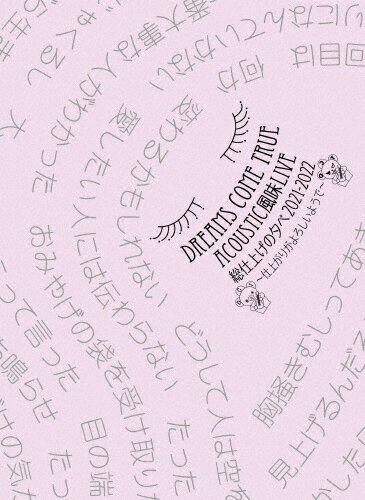 DREAMS COME TRUE
ACOUSTIC風味LIVE
総仕上げの夕べ2021-2022
〜仕上がりがよろしいようで〜
回目は
りにな
何か
ていかない
番大事な人がわかった
ゃくるし
変わるかもしれない
愛したい人には伝わらない
おみやげの袋を受け取り
って言った
も鳴らせ
どうして人は空
だった
目の端
胸掻きむしってあ
見上げるんだろ